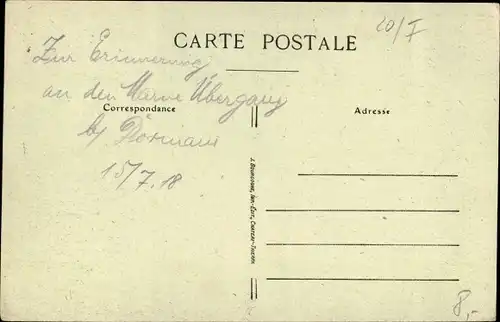 20/I
CARTE POSTALE
Zur Erinnerung
an den Marne Übergang
Correspondance
Adresse
b/ Dormans
15/7.18
J. Bourgogne, Imp.-Édit., Chateau-Thierry
8,-